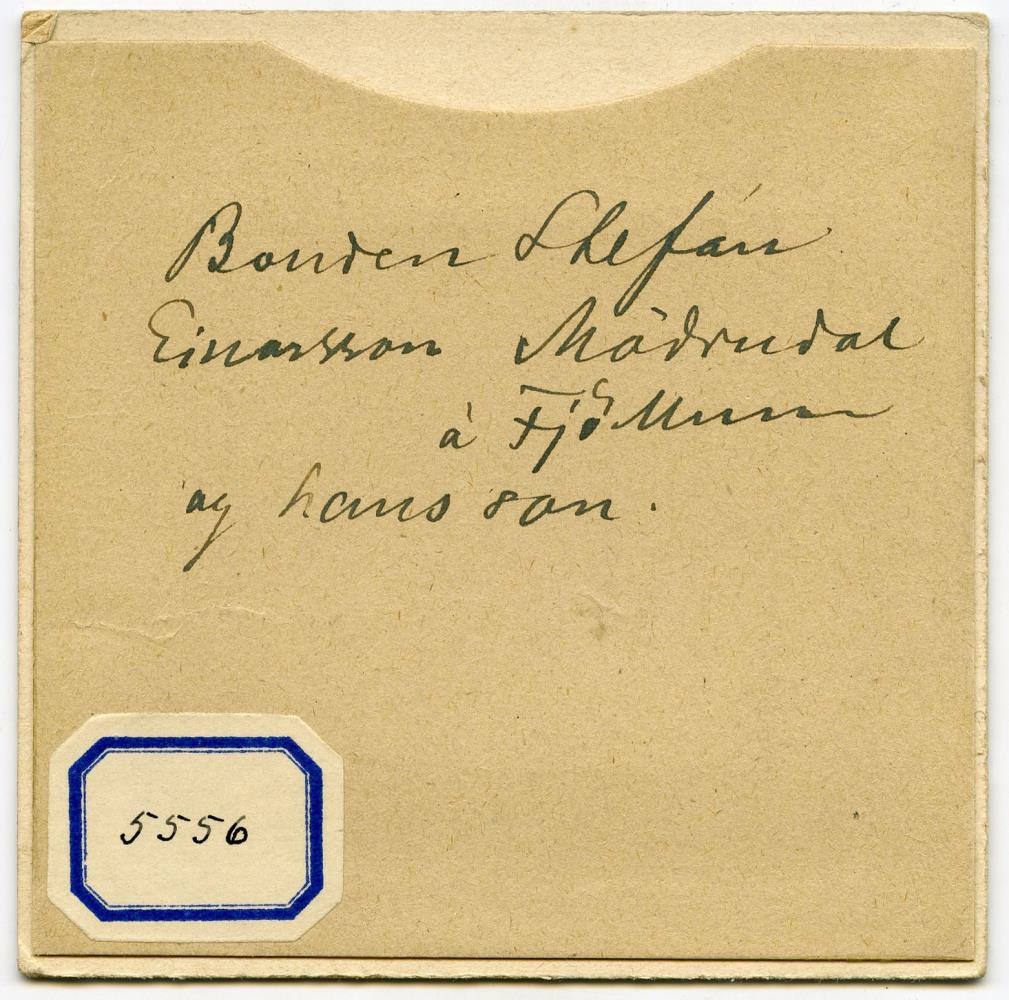 Bonden Stefán
Einarsson Mödrudal
á Fjöllum
og hans son.
5556